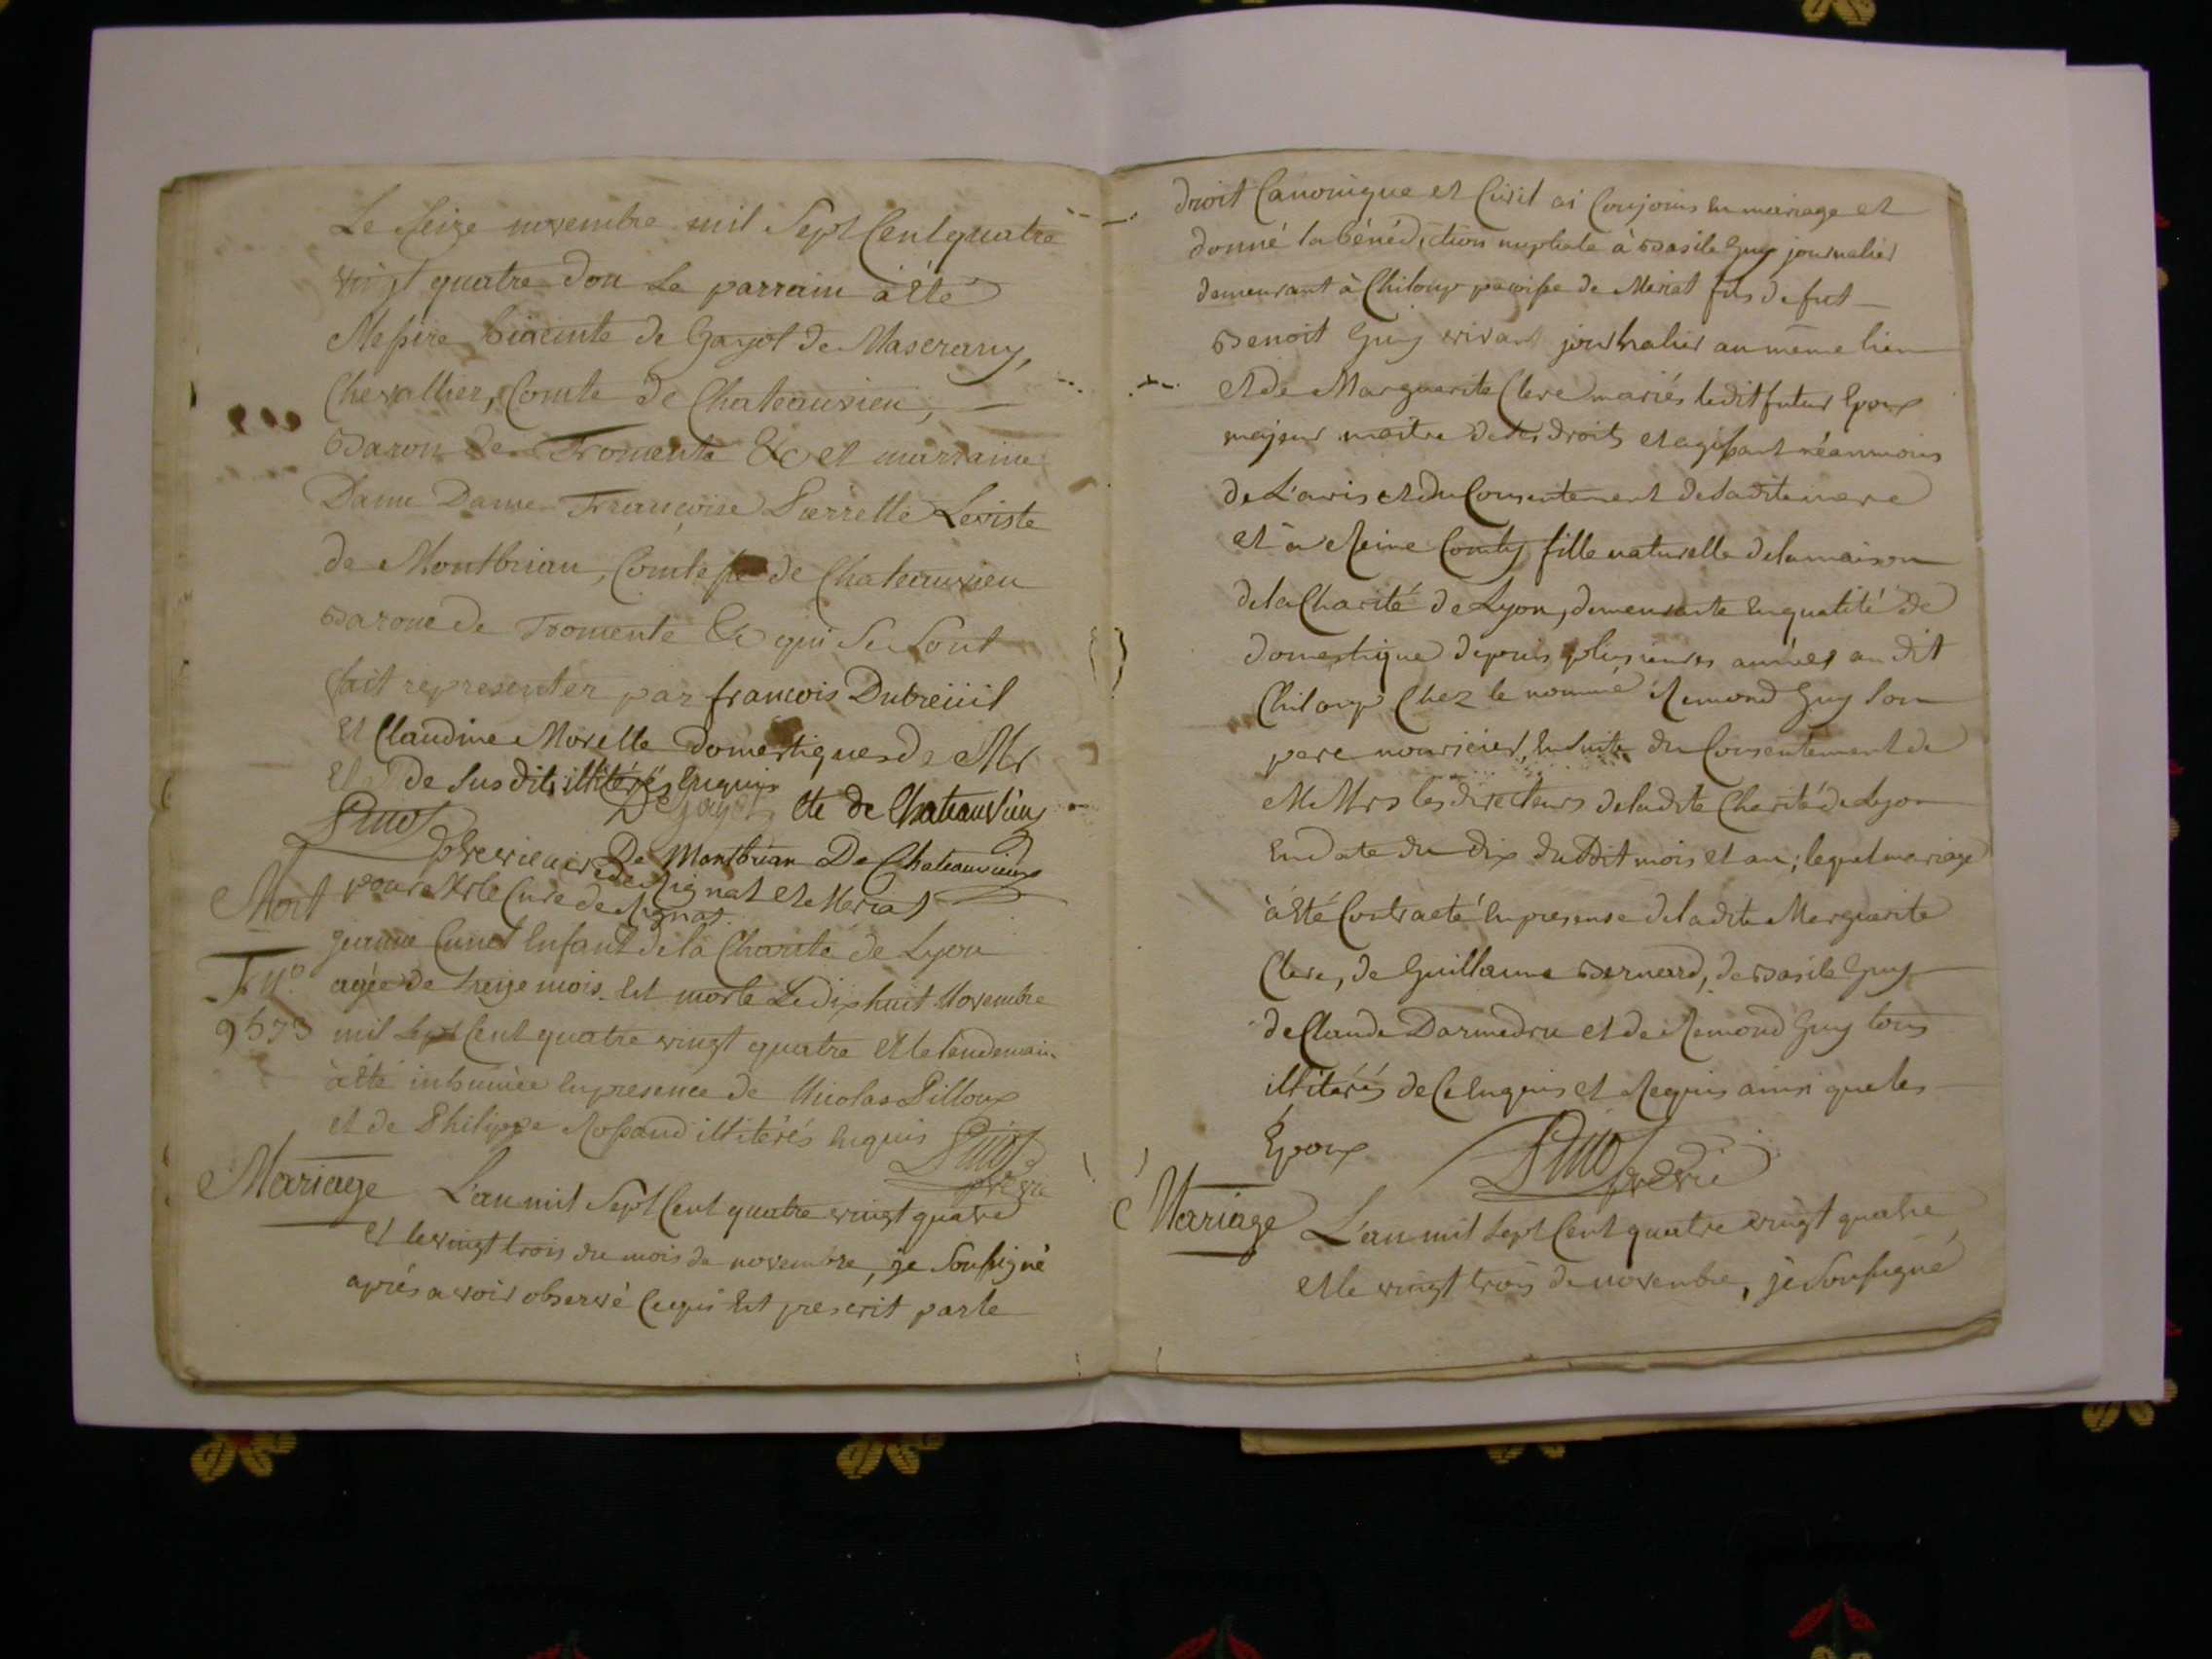 Le Seize novembre mil Sept Cent quatre
vingt quatre dou Le parrain à été
Messire hiacinte de Gayot de Mascrany,
Chevallier, Comte de Chateauvieu,
Baron de Fromente &c et marraine
Dame Dame Françoise Pierrette Leviste
de Montbrian, Comtesse de Chateauvieu
Barone de Fromente &c qui Se Sont
fait representer par françois Dubreüil
et Claudine Morelle domestiques de Mr
et de Sus dits illitérés Enquis
De gayot cte de Chateauvieux
De Montbrian De Chateauvieux
pour Mr le Curé de Rignat et Meriat
Mort
Jeanne Enfant de la Charité de Lyon
agée de treize mois Est morte Le dix huit Novembre
F no
9573 mil Sept Cent quatre vingt quatre et le lendemain
à été inhumée En presence de Nicolas Pilloux
et de Philippe Rossand illitérés Enquis
Mariage L'an mil Sept Cent quatre vingt quatre
et le vingt trois du mois de novembre, je Soussigné
aprés avoir observé Ce qui Est prescrit par le
droit Canonique et Civil ai Conjoins En mariage et
donné la bénédiction nuptiale à Basile Guy journalier
demeurant à Chiloup paroisse de Meriat fils de fut
Benoit Guy vivant journalier au même lieu
et de Marguerite Clere mariés ledit futur Epoux
majeur maitre de Ses droits et agissant néanmoins
de L'avis et du Consentement de ladite mere
et à Reine Comty fille naturelle de la maison
de la Charité de Lyon, demeurante En qualité de
domestique depuis plusieurs années au dit
Chiloup Chez le nommé Remond Guy Son
pere nouricier, En Suite du Consentement de
MMrs les directeurs de ladite Charité de Lyon
En date du dix du dit mois et an; lequel mariage
à été Contracté En presense de ladite Marguerite
Clere, de Guillaume Bernard, de Basile Guy
de Claude Darmedru et de Remond Guy tous
illitérés de Ce Enquis et Requis ainsi que les
Epoux
Mariage L'an mil Sept Cent quatre vingt quatre
et le vingt trois de novembre, je Soussigné